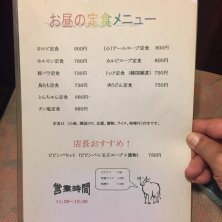 お昼の定食メニュー
カルビ定食 900円
ホルモン定食 780円
豚バラ定食 780円
鳥もも定食 730円
とんちゃん定食 680円
タン塩定食 680円
(小)テールスープ定食 800円
カルビスープ定食 800円
トック定食 (韓国雑煮) 750円
肉うどん定食 750円
定食は、(小鉢、韓国のり、豆腐、漬物、ライス、味噌汁)付きです。
店長おすすめ!
ビビンバセット (ビビンバ+玉子スープ+漬物) 750円
営業時間
11:30~13:30